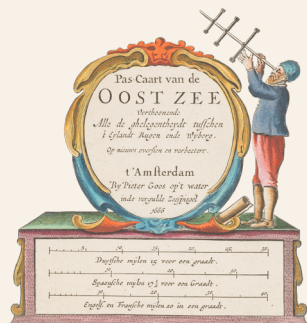 Pas-Caart van de
OOST ZEE
Verthoonende
Alle de ghelegentheydt tusschen
t Eylandt Rugen ende Wyborg.
Op nieuws oversien en verbeetert.
t'Amsterdam
By Pieter Goos op't water
inde vergulde Zeespigel
1666
5 10 15 20 25 30
Duytsche mylen 15 voor een graadt.
Spaensche mylen 17½ voor een Graadt.
Engels en Fransche mylen 20 in een graadt.